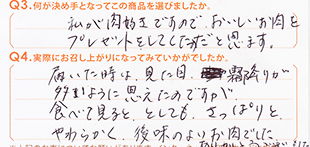 Q3.何が決め手となってこの商品を選びましたか。
私が肉好きですので、おいしいお肉を
プレゼントをしてくださったと思います。
Q4.実際にお召し上がりになってみていかがでしたか。
届いた時は、見た目、霜降りが
多いように思えたのですが、
食べて見ると、とても、さっぱりと、
やわらかく、後味のよいお肉でした。